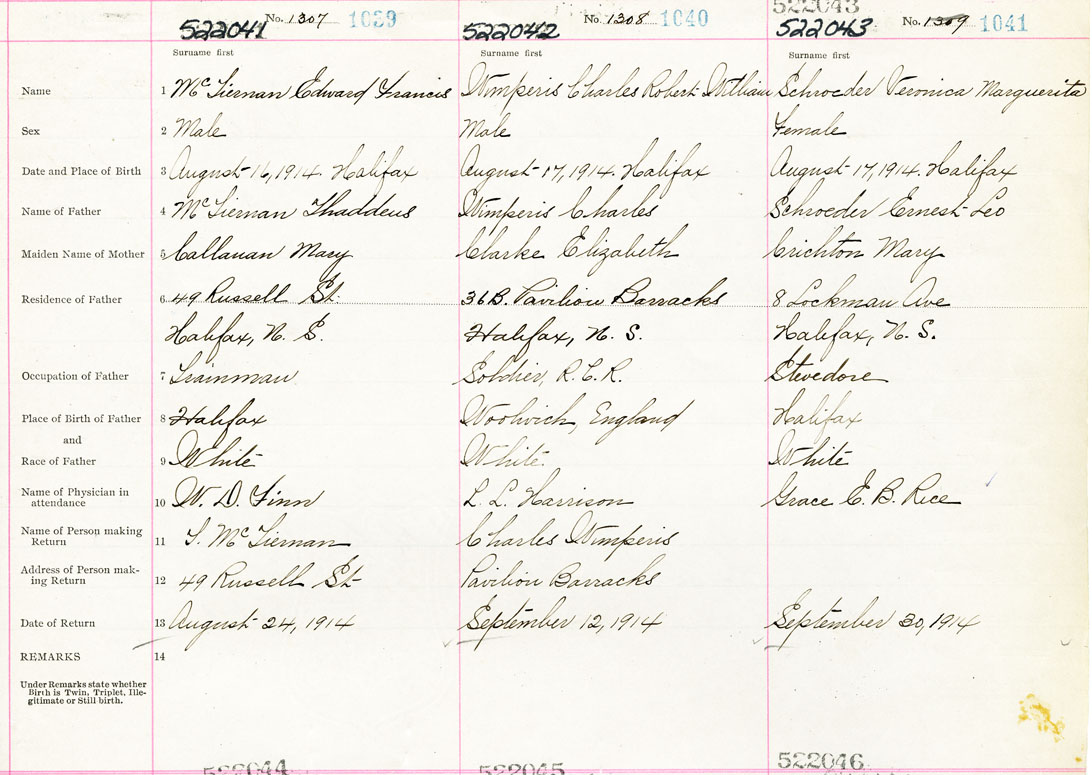 522043
522041 No. 1307 1039 522042 No. 1308 1040 522043 No. 1309 1041
Surname first Surname first Surname first
Name 1 McTiernan Edward Francis Wimperis Charles Robert William Schroeder Veronica Marguerita
Sex 2 Male Male Female
Date and Place of Birth 3 August 16, 1914. Halifax August 17, 1914. Halifax August 17, 1914. Halifax
Name of Father 4 McTiernan Thaddeus Wimperis Charles Schroeder Ernest Leo
Maiden Name of Mother 5 Callanan Mary Clarke Elizabeth Crichton Mary
Residence of Father 6 49 Russell St. 36B. Pavilion Barracks 8 Lockman Ave
Halifax, N. S. Halifax, N. S. Halifax, N. S.
Occupation of Father 7 Trainman Soldier, R.C.R. Stevedore
Place of Birth of Father 8 Halifax Woolwich, England Halifax
and
Race of Father 9 White White. White
Name of Physician in
attendance 10 W. D. Finn L. L. Harrison Grace E. B. Rice
Name of Person making
Return 11 T. McTiernan Charles Wimperis
Address of Person mak-
ing Return 12 49 Russell St Pavilion Barracks
Date of Return 13 August 24, 1914 September 12, 1914 September 30, 1914
REMARKS 14
Under Remarks state whether
Birth is Twin, Triplet, Ille-
gitimate or Still birth.
522044 522045 522046